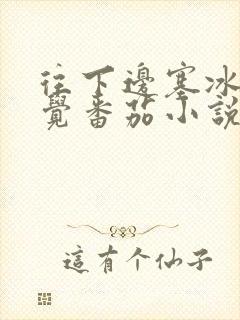 往下邊塞冰
覺番茄小說
這有个仙子